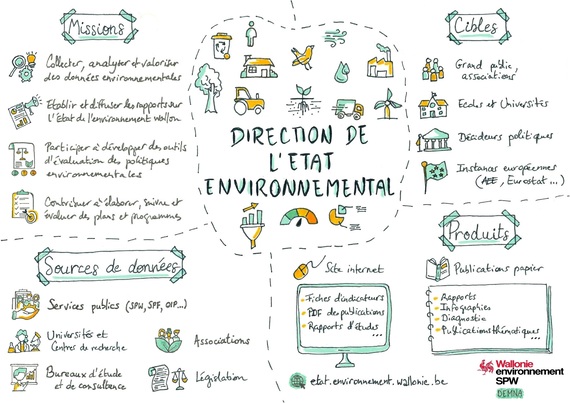 Missions
Collecter, analyser et valoriser
des données environnementales
Etablir et diffuser les rapports sur
l'état de l'environnement wallon
Participer à développer des outils
d'évaluation des politiques
environnementales
Contribuer à élaborer, suivre et
évaluer des plans et programmes
DIRECTION DE
L'ETAT
ENVIRONNEMENTAL
Cibles
Grand public,
associations
Ecoles et Universités
Décideurs politiques
Instances européennes
(AEE, Eurostat...)
Sources de données
Services publics (SPW, SPF, OIP...)
Universités et
Centres de recherche
Bureaux d'étude
et de consultance
Associations
Législation
Produits
Site internet
Fiches d'indicateurs
PDF de publications
Rapports d'études
...
etat.environnement.wallonie.be
Publications papier
Rapports
Infographies
Diagnostic
Publications thématiques
...
Wallonie
environnement
SPW
DEMNA